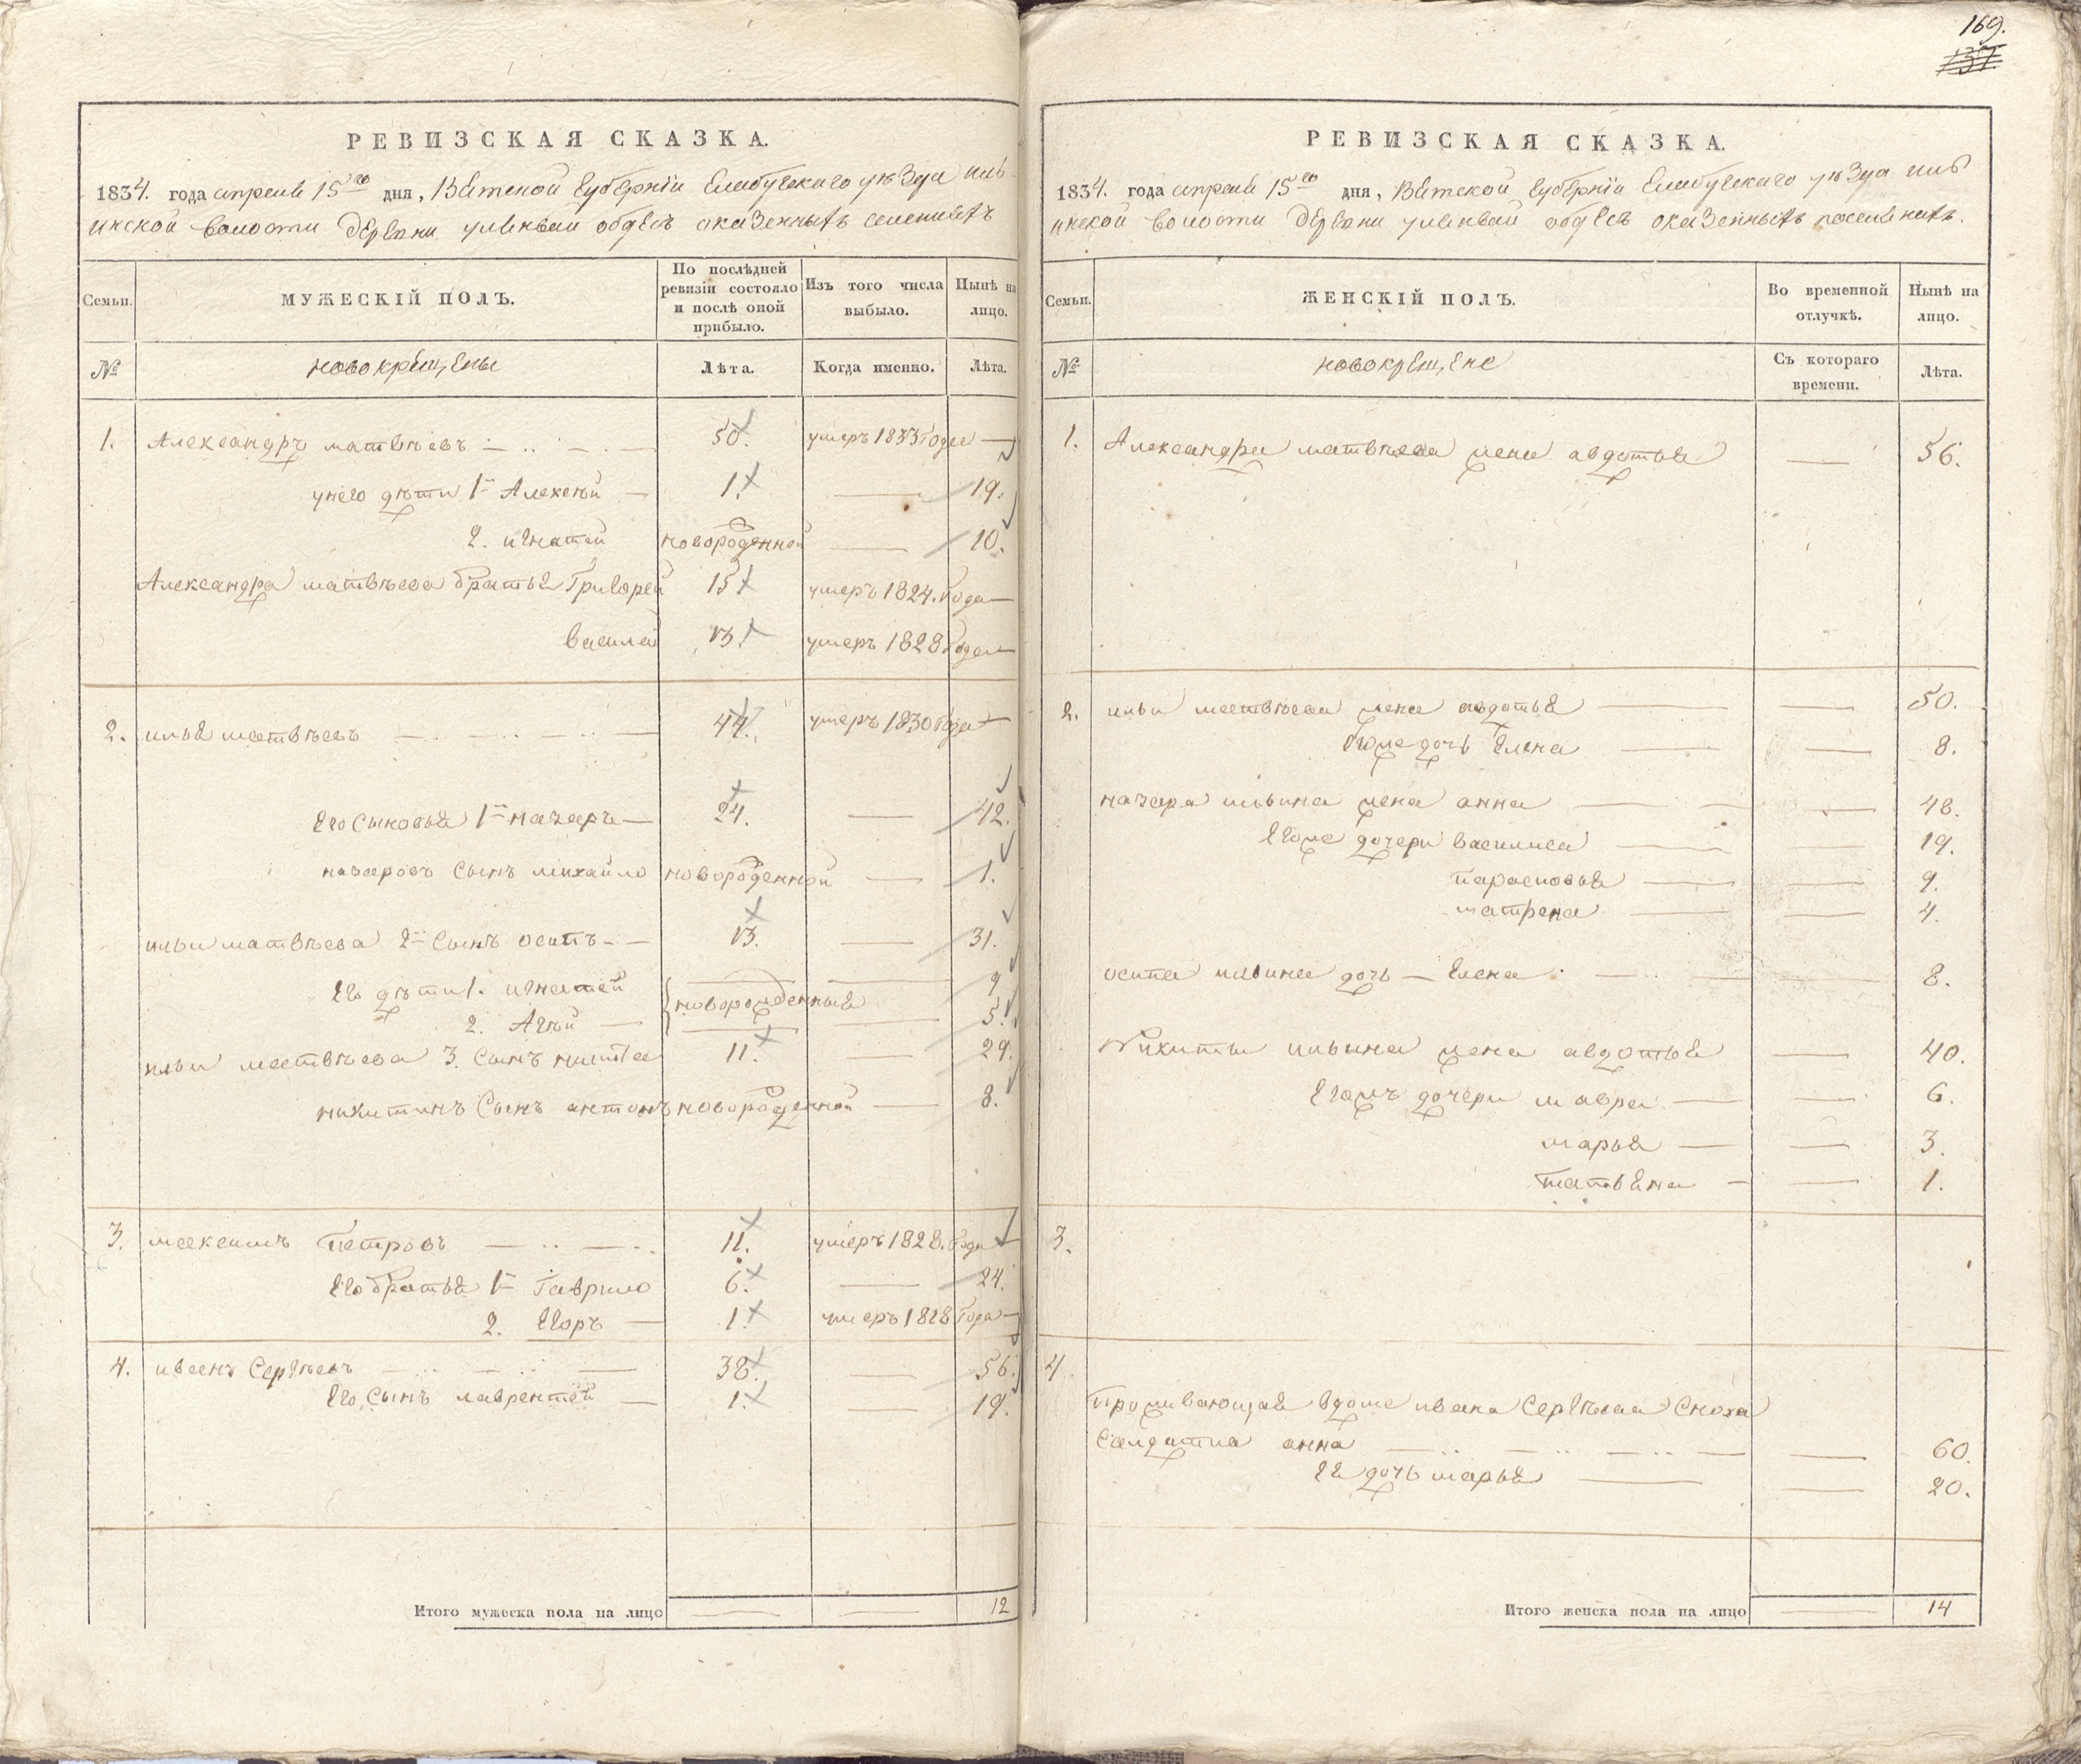 РЕВИЗСКАЯ СКАЗКА.
1834. года апреля 15го дня, Вятской Губернiи Елабужскаго уѣзда иль-
инской волости деревни обѣ оказенныхъ
Семьи.
МУЖЕСКIЙ ПОЛЪ.
По послѣдней ревизiи состояло и послѣ оной прибыло.
Изъ того числа выбыло.
Нынѣ на лицо.
№
новокрещены
Лѣта.
Когда именно.
Лѣта.
1. Александръ матвѣевъ 50. умеръ 1833 года
у него дѣти 1й Алексѣй 1. 19.
2. игнатей новорожденной 10.
Александра матвѣева братья Григорей 15 умеръ 1824. года
василей 13. умеръ 1828 года
2. илья матвѣевъ 44. умеръ 1830 года
Его сыновья 1й назаръ 24. 42.
назаровъ сынъ михайло новорожденной 1.
ильи матвѣева 2й сынъ осипъ 13. 31.
Его дѣти 1. игнатей 9
новорожденныя
2. Агѣй 5.
ильи матвѣева 3. сынъ никита 11. 29.
никитинъ сынъ антонъ новорожденной 8.
3. максимъ петровъ 11. умеръ 1828. года
Его братья 1й гаврило 6. 24.
2. Егоръ 1. умеръ 1828 года
4. иванъ Сергѣевъ 38. 56.
Его сынъ лаврентей 1. 19.
Итого мужеска пола на лицо 12
169.
137.
РЕВИЗСКАЯ СКАЗКА.
1834. года апреля 15го дня, Вятской Губернiи Елабужскаго уѣзда иль
инской волости деревни обѣ оказенныхъ поселянахъ.
Семьи.
ЖЕНСКIЙ ПОЛЪ.
Во временной отлучкѣ.
Нынѣ на лицо.
№
новокрещене
Съ котораго времени.
Лѣта.
1. Александра матвѣева жена авдотья 56.
2. ильи матвѣева жена авдотья 50.
Егоже дочь Елена 8.
назара ильина жена анна 48.
Егоже дочери василиса 19.
парасковья 9.
матрена 4.
осипа ильина дочь Елена 8.
Никиты ильина жена авдотья 40.
Егожъ дочери мавра 6.
марья 3.
татьяна 1.
3.
4
проживающая вдоме ивана Сергѣева сноха
Салдатка анна 60.
Ея дочь марья 20.
Итого женска пола на лицо 14